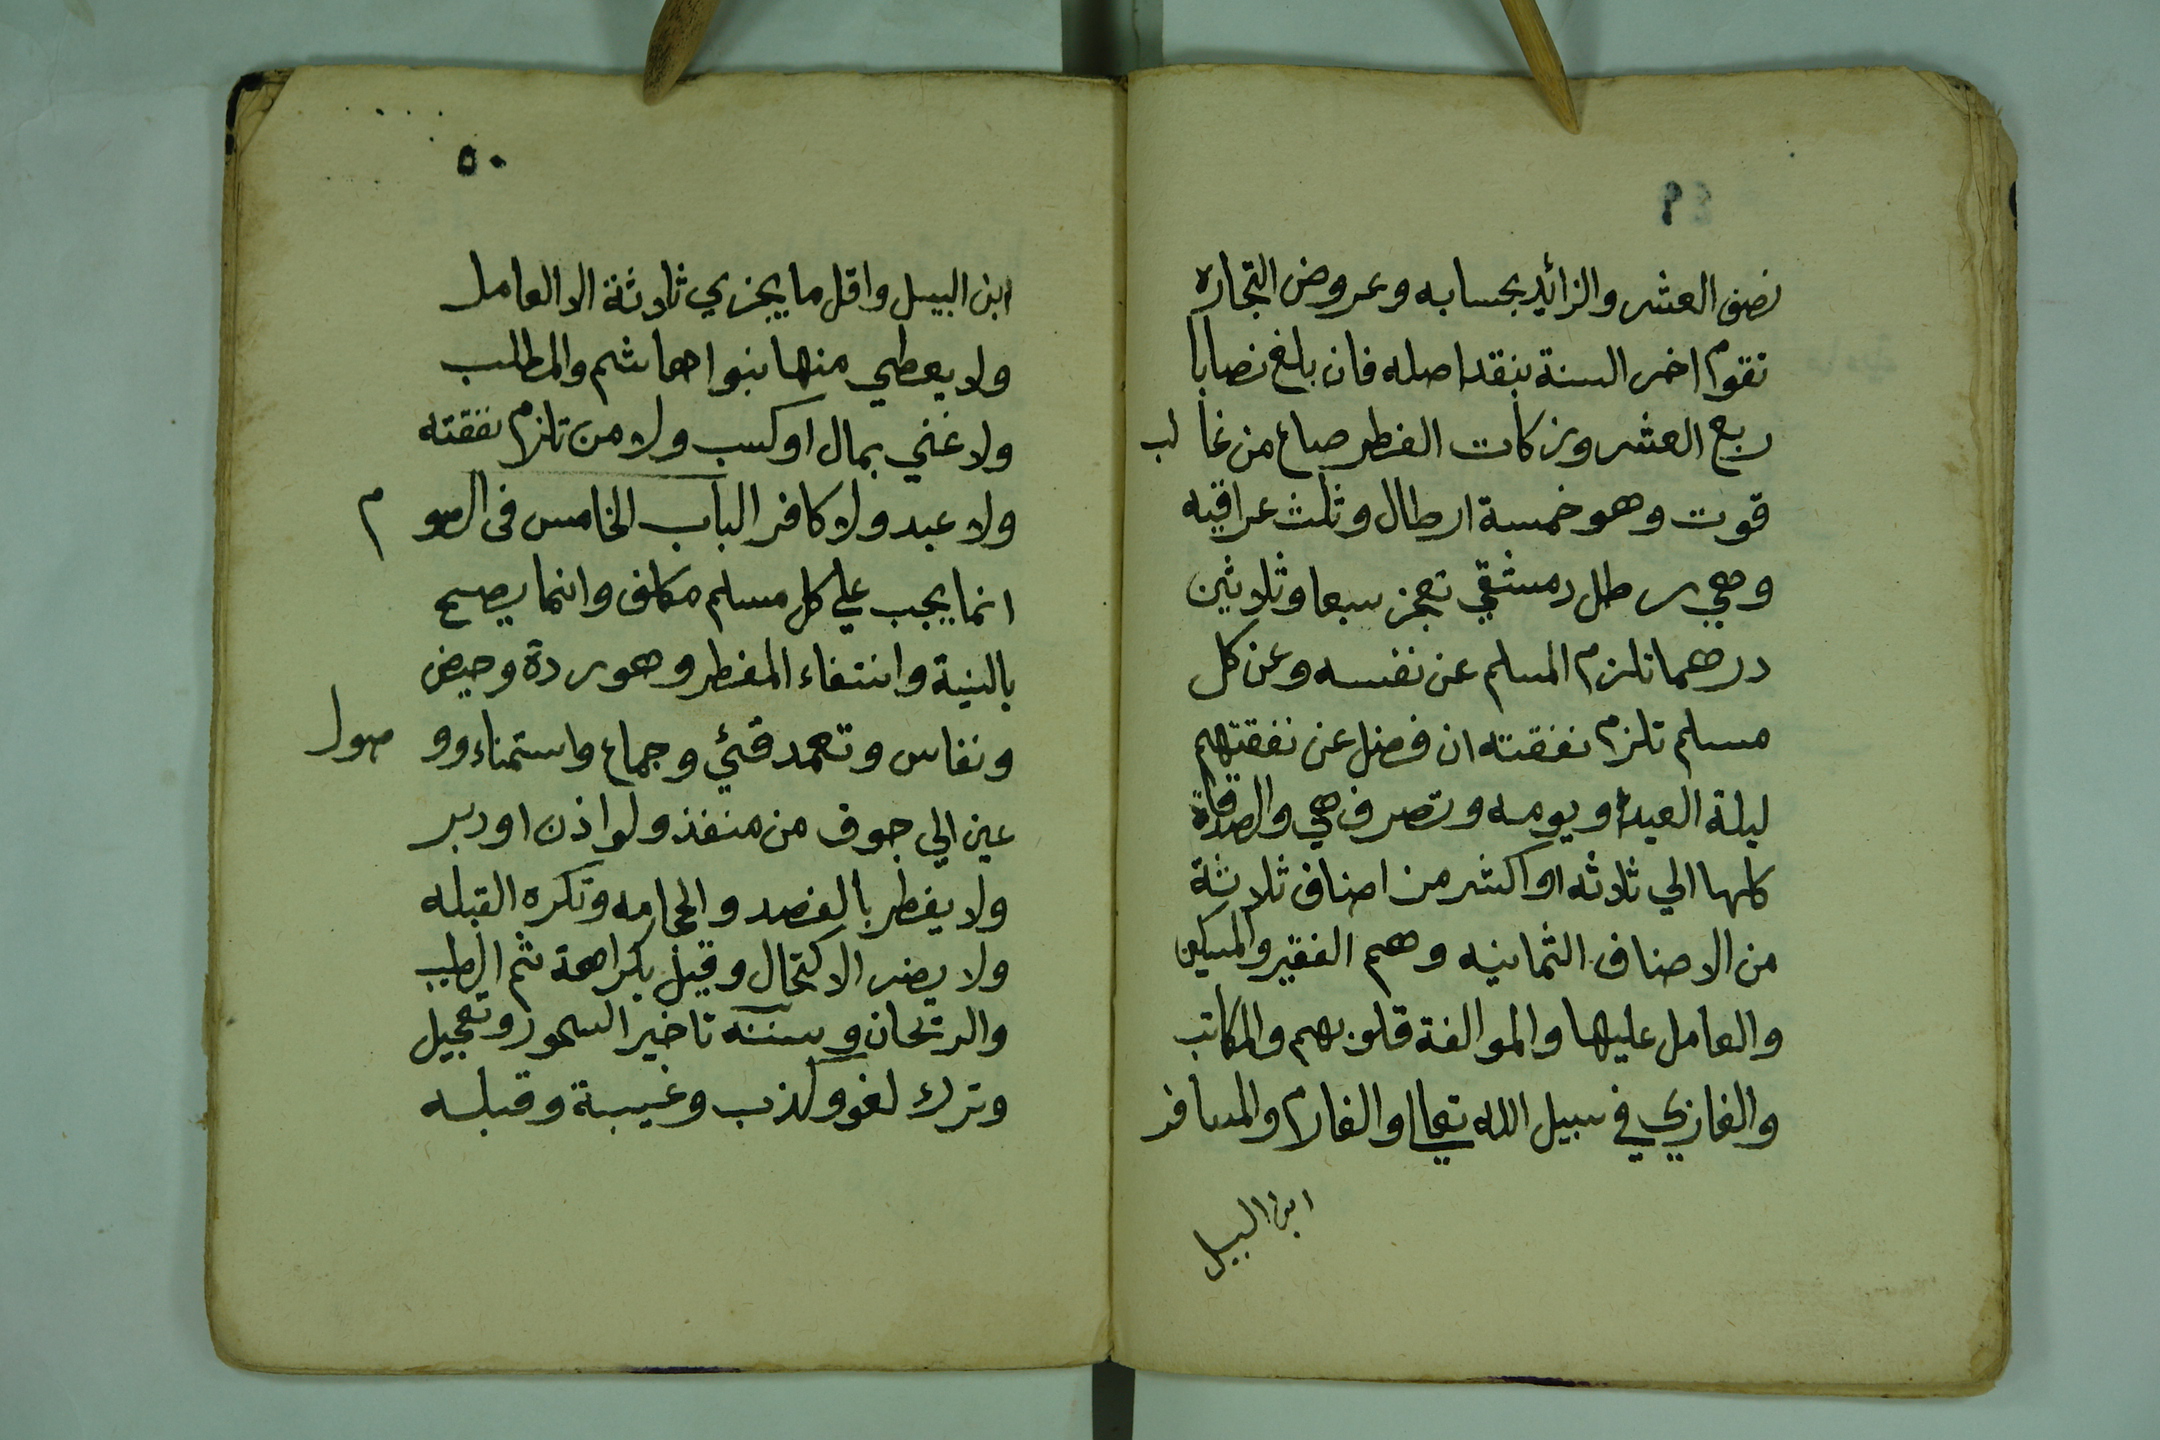 ٤٩
نصف العشر والزائد بحسابه وعروض التجاره
تقوم اخر السنة بنقد اصله فان بلغ نصابا
ربع العشر وزكات الفطر صاع من غالب
قوت وهو خمسة ارطال وثلث عراقيه
وهي رطل دمشقي تعجز سبعا وثلاثين
درهما تلزم المسلم عن نفسه وعن كل
مسلم تلزم نفقته ان فضل عن نفقتهم
ليلة العيد ويومه وتصرف هي والصدقاة
كلها الي ثلاثه او اكثر من اصناف ثلاثة
من الاصناف الثمانيه وهم الفقير والمسكين
والعامل عليها والموالفة قلوبهم والمكاتب
والغازي في سبيل الله تعالى والغارم والمسافر
ابن السبيل
٥٠
ابن السبيل واقل ما يجزي ثلاثة الا العامل
ولا يعطي منها بنوا هاشم والمطلب
ولا غني بمال او كسب ولا من تلزم نفقته
ولا عبد ولا كافر الباب الخامس فى الصوم
انما يجب علي كل مسلم مكلف وانما يصح
بالنية وانتفاء المفطر وهو ردة وحيض
ونفاس وتعمد قئي وجماع واستمناء وو صول
عين الي جوف من منفذ ولو اذن او دبر
ولا يفطر بالفصد والحجامه وتكره القبله
ولا يضر الاكتحال وقيل بكراهة شم الطيب
والريحان وسننه تاخير السحور وتعجيل
وترك لغو وكذب وغيبة وقبله